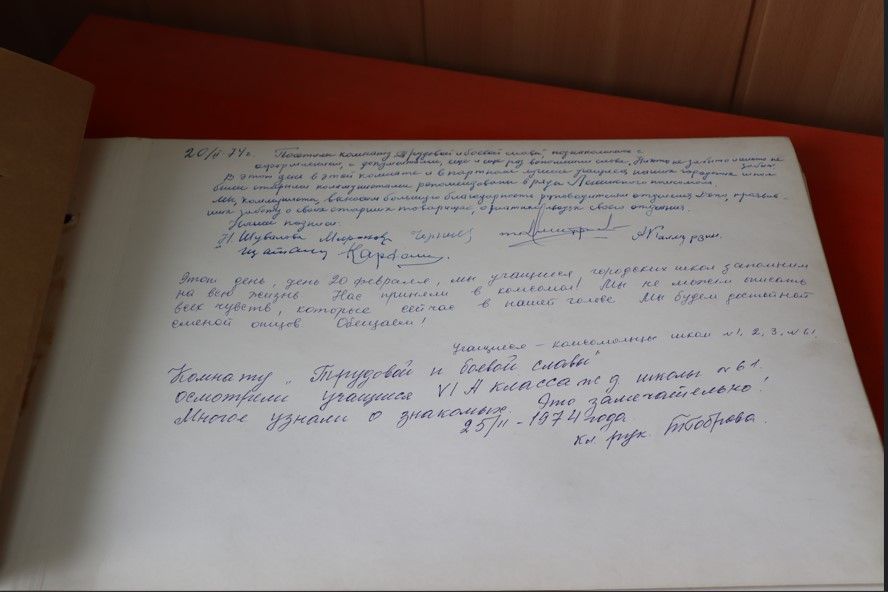 20/II-74 г. Посетили комнату "Трудовой и боевой славы" познакомились с
оформлением, с документами, еще и еще раз вспомнили слова "Никто не забыт и ничто не забыто"
В этот день в этой комнате и в парткоме лучшие учащиеся наших городских школ
были старыми коммунистами рекомендованы в ряды Ленинского комсомола.
Мы, коммунисты, выносим большую благодарность руководителям отделения дороги, проявив-
ших заботу о своих старших товарищах, о ветеранах своего отделения.
Шувалова Миронов Черняев
Этот день, день 20 февраля, мы учащиеся городских школ запомним
на всю жизнь. Нас приняли в комсомол! Мы не можем описать
всех чувств, которые сейчас в нашей голове. Мы будем достойной
сменой отцов. Обещаем!
Учащиеся - комсомольцы школ №1, 2, 3, №61.
Комнату "Трудовой и боевой славы"
осмотрели учащиеся VI А класса ж д школы №61.
Многое узнали о знакомых. Это замечательно!
25/II-1974 года
Кл. рук. Боброва.